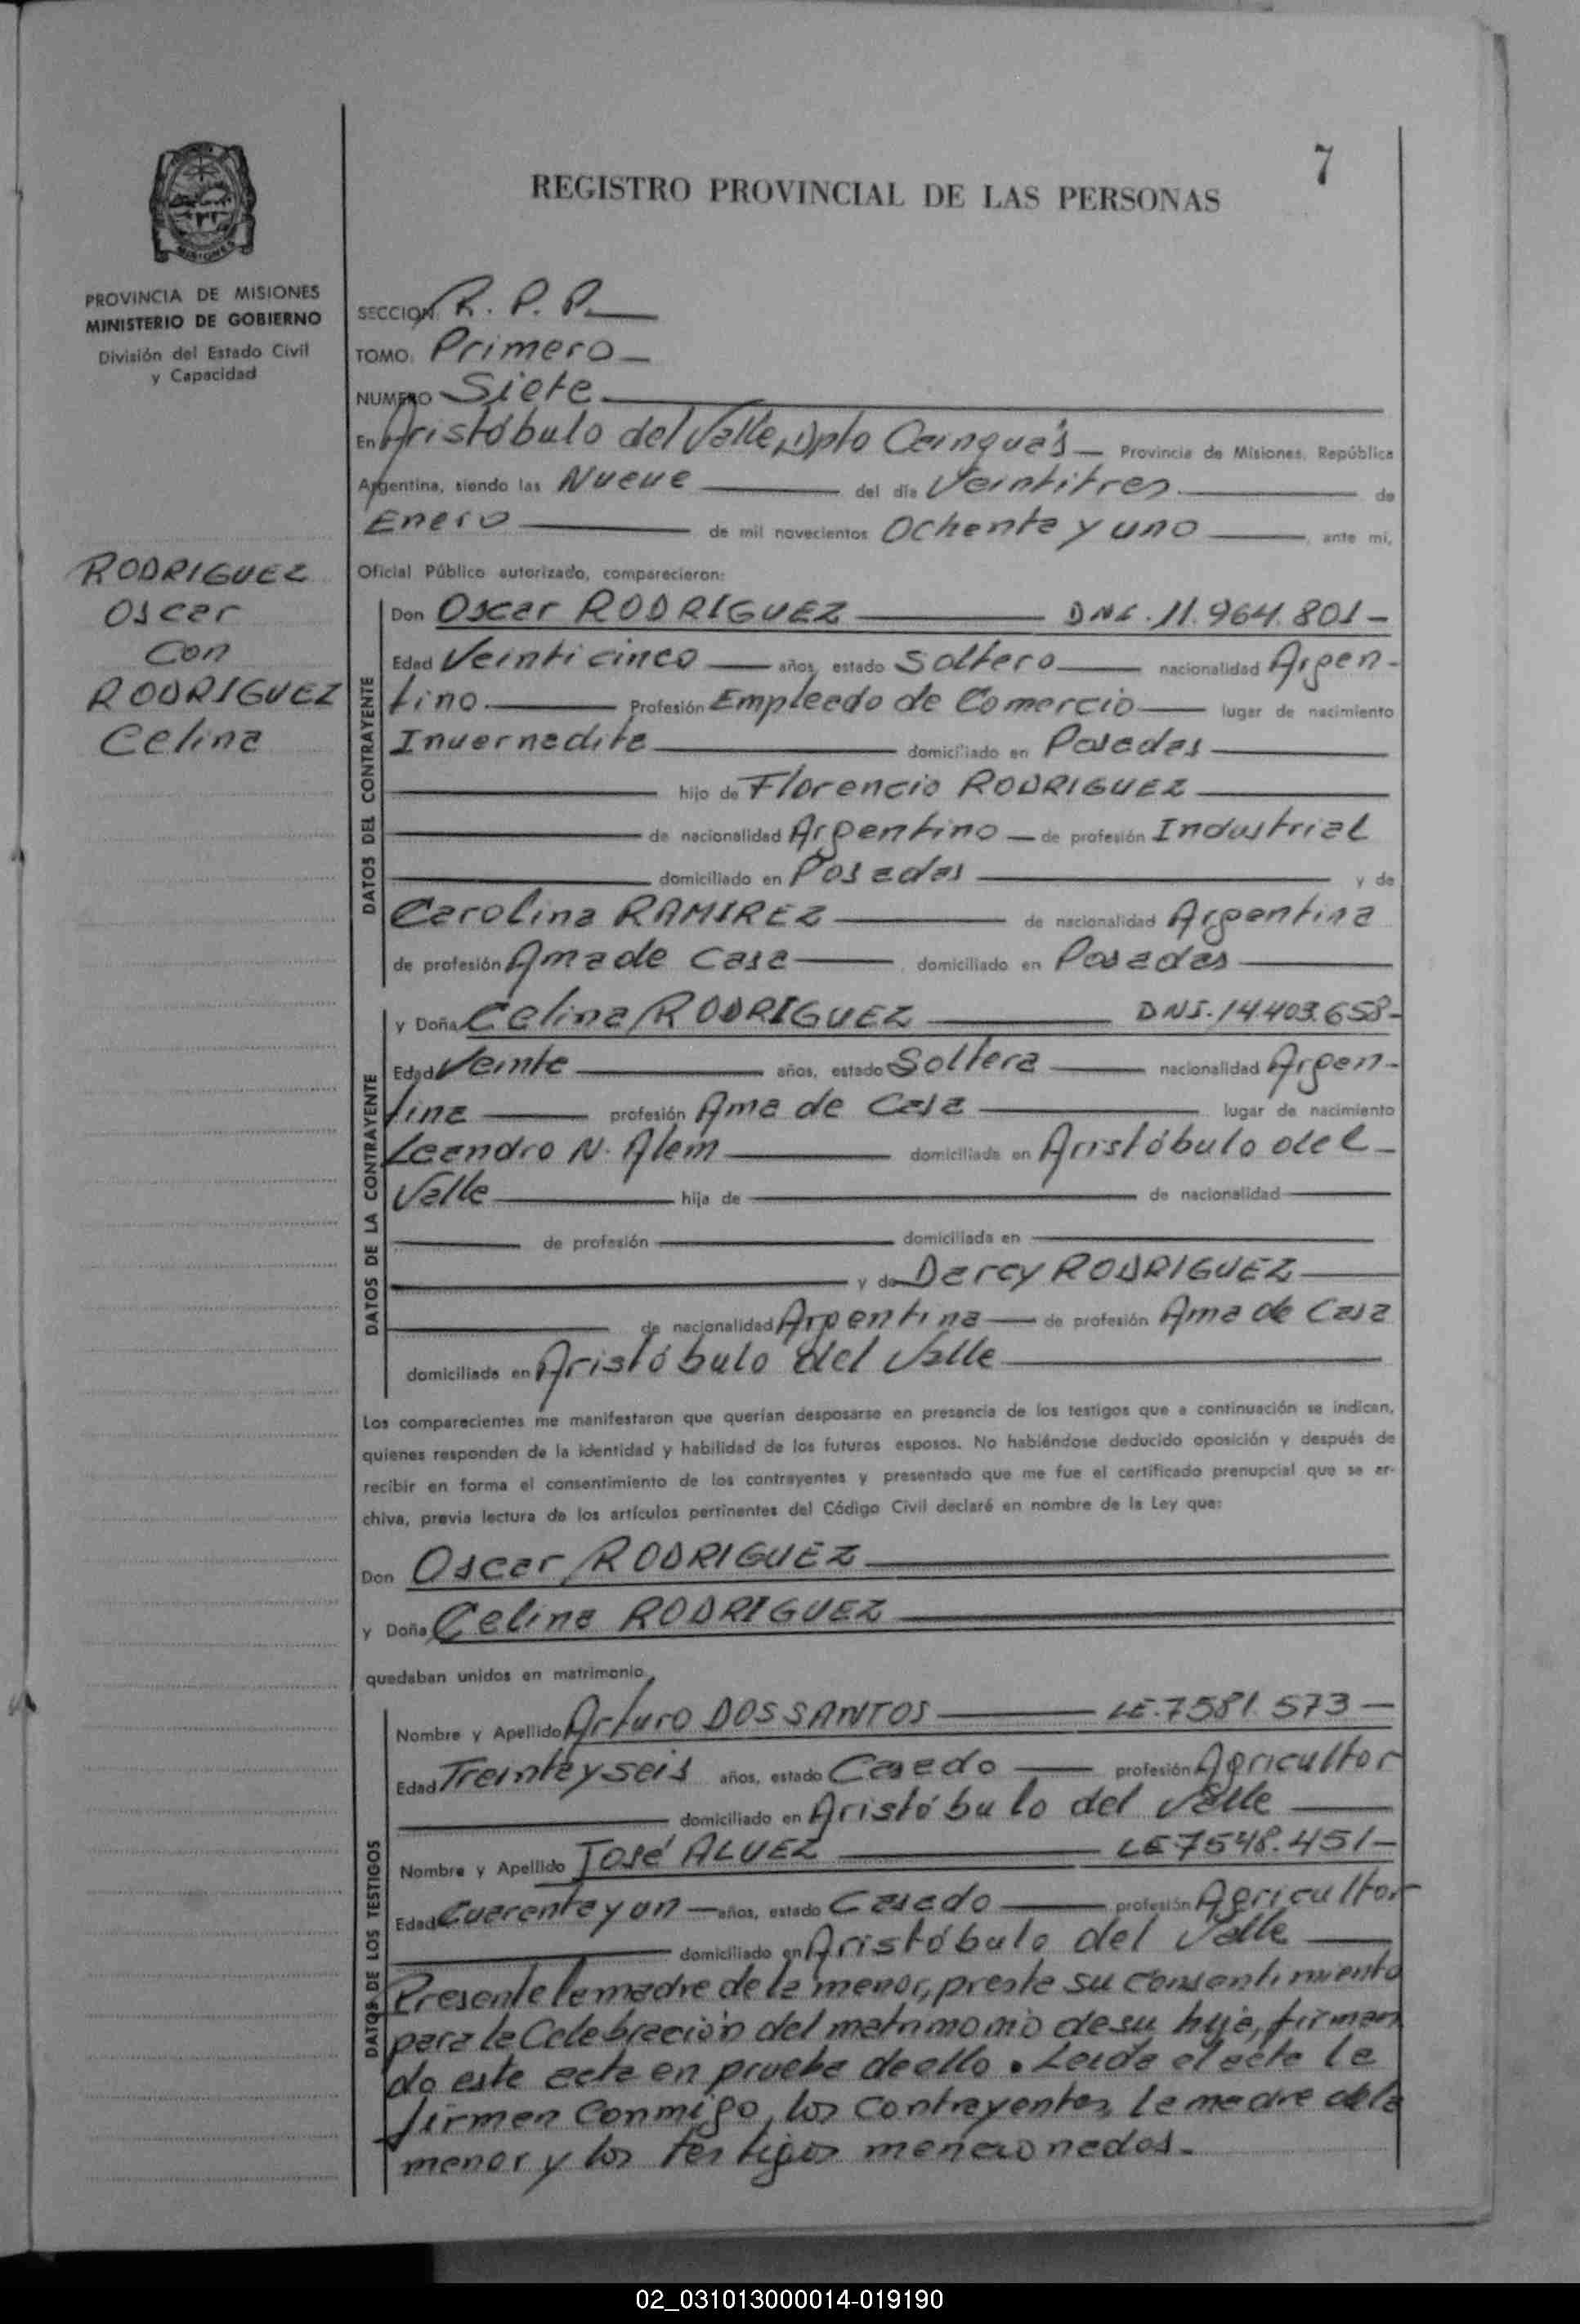 7
REGISTRO PROVINCIAL DE LAS PERSONAS
MISIONES
PROVINCIA DE MISIONES
MINISTERIO DE GOBIERNO
División del Estado Civil
y Capacidad
RODRIGUEZ
Oscar
con
RODRIGUEZ
Celina
SECCION R. P. P.
TOMO Primero
NUMERO Siete
En Aristóbulo del Valle, Dpto Cainguás Provincia de Misiones, República
Argentina, siendo las Nueve del día Veintitres de
Enero de mil novecientos Ochenta y uno ante mi,
Oficial Público autorizado, comparecieron:
DATOS DEL CONTRAYENTE
Don Oscar RODRIGUEZ DNI. 11.964.801-
Edad Veinticinco años, estado Soltero nacionalidad Argen-
tino Profesión Empleado de Comercio lugar de nacimiento
Invernadita domiciliado en Posadas
hijo de Florencio RODRIGUEZ
de nacionalidad Argentino de profesión Industrial
domiciliado en Posadas y de
Carolina RAMIREZ de nacionalidad Argentina
de profesión Ama de Casa domiciliado en Posadas
DATOS DE LA CONTRAYENTE
y Doña Celina RODRIGUEZ DNI. 14.403.658-
Edad Veinte años, estado Soltera nacionalidad Argen-
tina profesión Ama de Casa lugar de nacimiento
Leandro N. Alem domiciliada en Aristóbulo del
Valle hija de de nacionalidad
de profesión domiciliada en
y de Darcy RODRIGUEZ
de nacionalidad Argentina de profesión Ama de Casa
domiciliada en Aristóbulo del Valle
Los comparecientes me manifestaron que querían desposarse en presencia de los testigos que a continuación se indican,
quienes responden de la identidad y habilidad de los futuros esposos. No habiéndose deducido oposición y después de
recibir en forma el consentimiento de los contrayentes y presentado que me fue el certificado prenupcial que se ar-
chiva, previa lectura de los artículos pertinentes del Código Civil declaré en nombre de la Ley que:
Don Oscar RODRIGUEZ
y Doña Celina RODRIGUEZ
quedaban unidos en matrimonio.
DATOS DE LOS TESTIGOS
Nombre y Apellido Arturo DOS SANTOS LE.7581.573-
Edad Treinta y seis años, estado Casado profesión Agricultor
domiciliado en Aristóbulo del Valle
Nombre y Apellido José ALVEZ LE 7548.451-
Edad Cuarenta y un años, estado Casado profesión Agricultor
domiciliado en Aristóbulo del Valle
Presente la madre de la menor, presta su consentimiento
para la Celebración del matrimonio de su hija, firman
do este acta en prueba de ello. Leida el acta la
firman conmigo, los contrayentes, la madre de la
menor y los testigos mencionados.
02_031013000014-019190